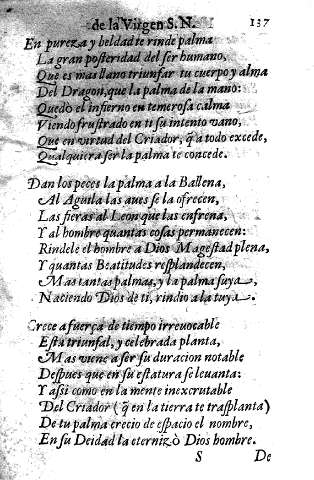 de la Virgen S. N. 137
En pureza y beldad te rinde palma
La gran posteridad del ser humano,
Que es mas llano triunfar tu cuerpo y alma
Del Dragon, que la palma de la mano:
Quedò el infierno en temerosa calma
Viendo frustrado en ti su intento vano,
Que en virtud del Criador, q̃ a todo excede,
Qualquiera ser la palma te concede.
Dan los peces la palma a la Ballena,
Al Aguila las aues se la ofrecen,
Las fieras al Leon que las enfrena,
Y al hombre quantas cosas permanecen:
Rindele el hombre a Dios Magestad plena,
Y quantas Beatitudes resplandecen,
Mas tantas palmas, y la palma suya,
Naciendo Dios de ti, rindio a la tuya.
Crece a fuerça de tiempo irreuocable
Esta triunfal, y celebrada planta,
Mas viene a ser su duracion notable
Despues que en su estatura se leuanta:
Y assi como en la mente inexcrutable
Del Criador (q̃ en la tierra te trasplanta)
De tu palma crecio de espacio el nombre,
En su Deidad la eternizò Dios hombre.
S De